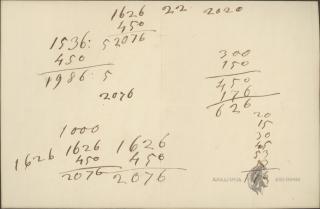 1626 22 2020
450
2076
1536: 5
450
1986: 5
2076
300
150
450
176
626
20
15
30
45
53
1000
1626 1626 1626
450 450
2076 2076